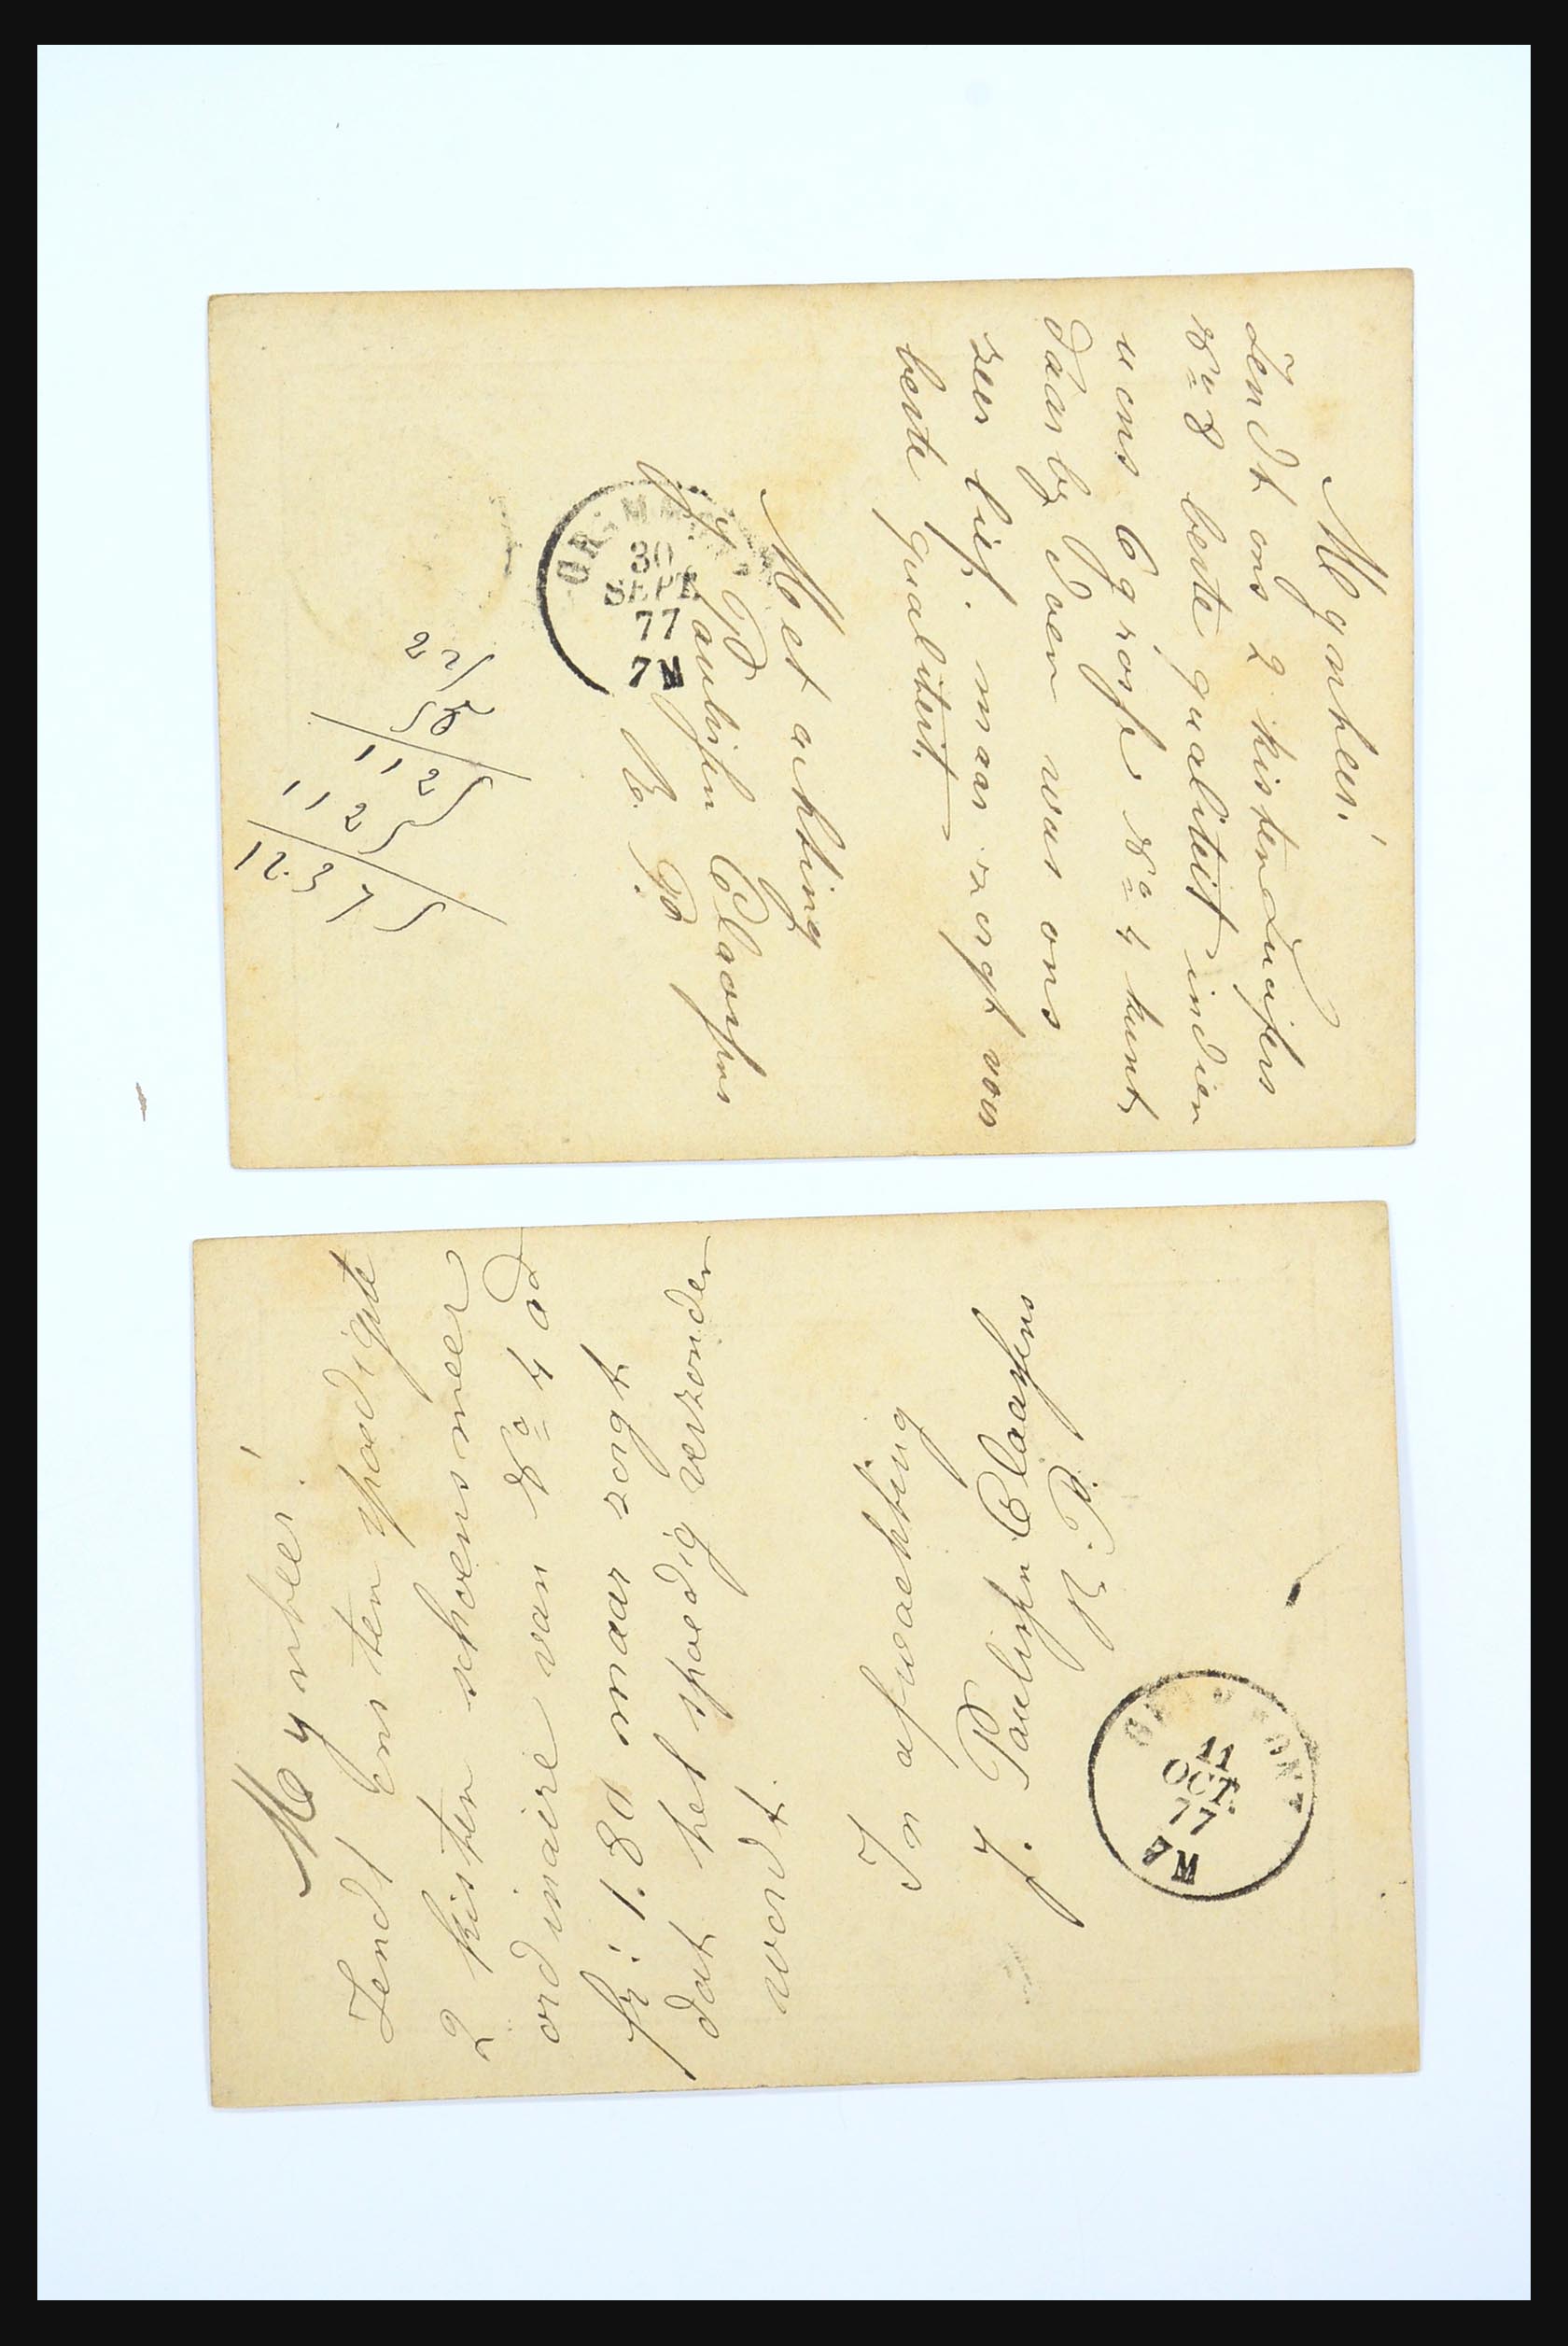 Mynheer!
Zendt ons 2 kisten duifers
No 8 beste qualiteit indien
u ons 6 grosse No 4 kunt
daarby doen was ons
zeer lief. maar zorgt voor
beste qualiteit
Met achting
Jq Paulissen Claassens
N. P.
30
SEPT
77
7N
22
112
112
12.37
Mynheer!
Zendt ons ten spoedigste
2 kisten schoensmeer
ordinaire van No 4 ad
fr: 1.80 maar zorgt
dat het spoedig verzonden
wordt.
In afwachting
J. Paulissen Claassens
N. P.
11
OCT
77